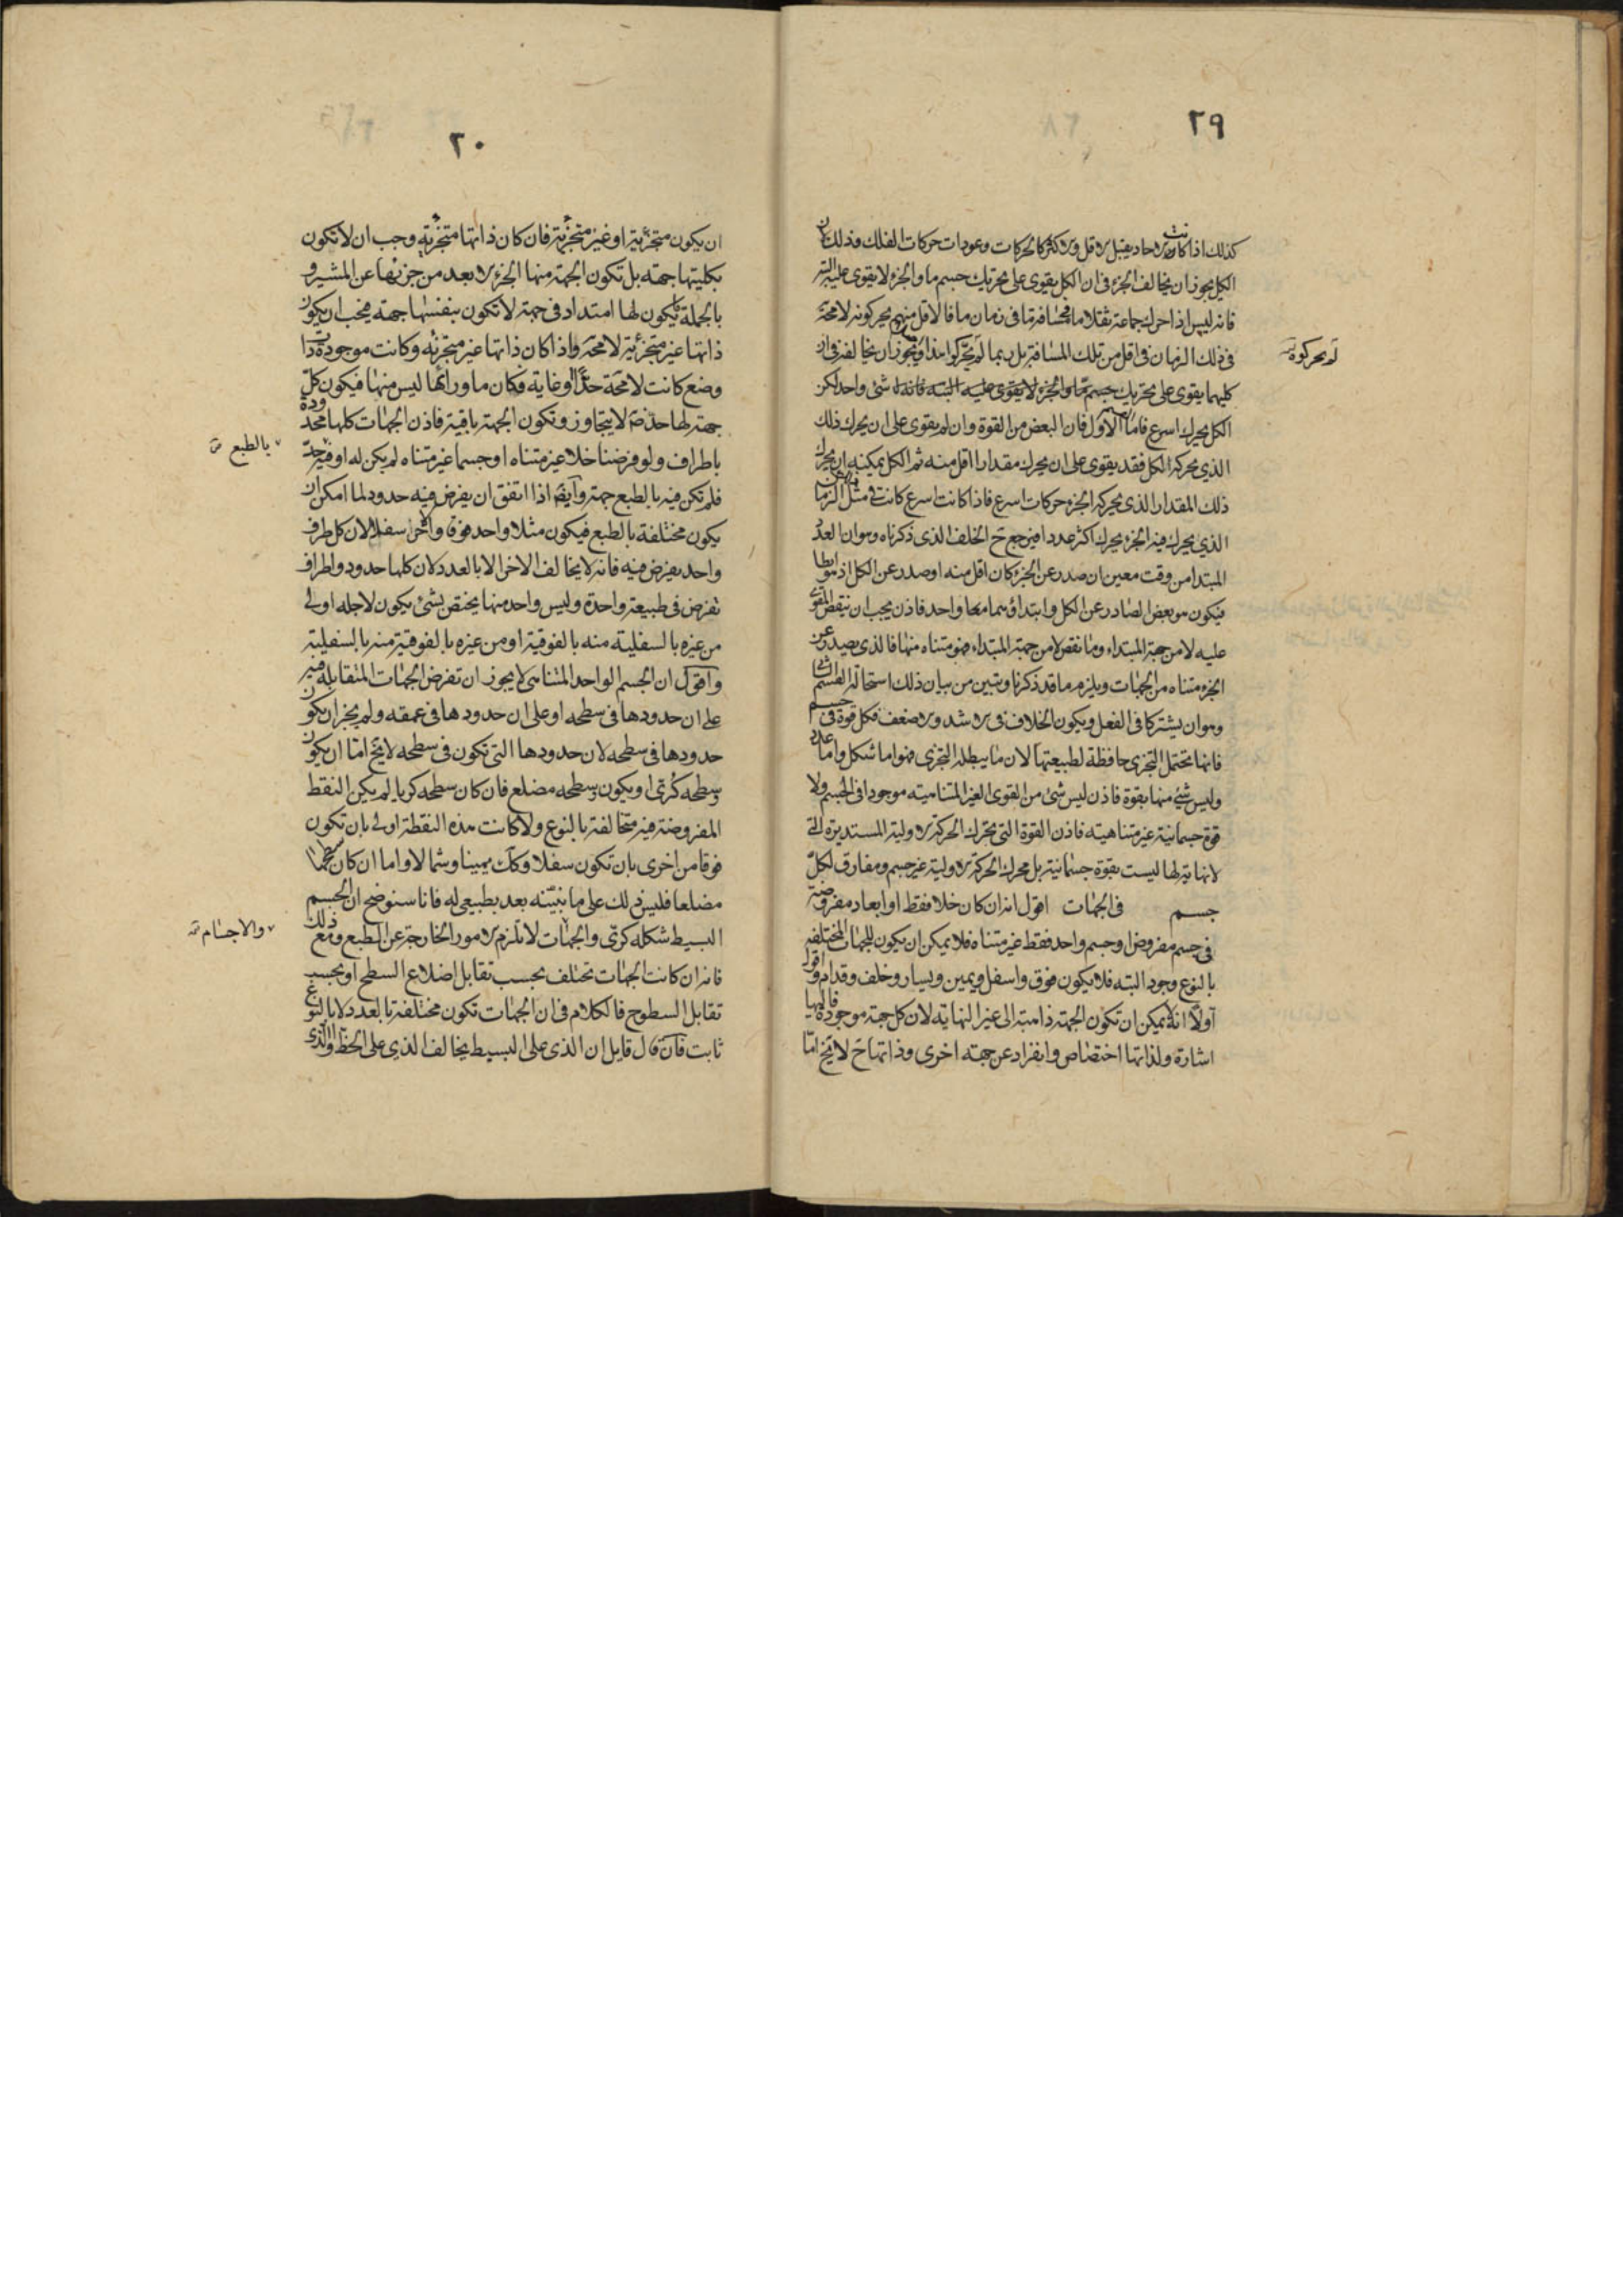 ٢٩
كذلك اذا كانت الاحاد يقبل الاقل والاكثر كالحركات وعودات حركات الفلك فذلك كان
الكل يجوز ان يخالف الجزء فى ان الكل يقوى على تحريك جسم ما والجزء لا يقوى عليه البتة
فانه ليس اذا حرك جماعة ثقلا ما فى مسافة ما فى زمان ما فالاقل منهم يحركونه لا محة
فى ذلك الزمان فى اقل من تلك المسافة بل ربما لم يحركوا هذا ويجوز ان يخالفه فى ان
لم يحركوه
كليهما يقوى على تحريك جسم ما والجزء لا يقوى عليه البته فانه شئ واحد لكن
الكل يحرك اسرع فاما القسم الاول فان البعض من القوة وان لم يقوى على ان يحرك ذلك
الذى يحركه الكل فقد يقوى على ان يحرك مقدارا اقل منه ثم الكل يمكنه ان يحرك
ذلك المقدار الذى يحركه الجزء حركات اسرع فاذا كانت اسرع كانت فى مثل الزمان
الذى يحرك فيه الجزء يحرك اكثر عددا فيرجع ح الخلف الذى ذكرناه وهو ان العدد
المبتدا من وقت معين ان صدر عن الجزء كان اقل منه او صدر عن الكل اذ هو ابطا
فيكون هو بعض الصادر عن الكل وابتداؤهما معا واحد فاذن يجب ان ينقص المقوى
عليه لا من جهة المبتداء وما نقص لا من جهة المبتداء فهو متناه منها فالذى يصدر عن
الجزء متناه من الجهات ويلزم ما قد ذكرنا ويتبين من بيان ذلك استحالة القسم الثانى
وهو ان يشتركا فى الفعل ويكون الخلاف فى الاشد والاضعف فكل قوة فى جسم
فانها تحتمل التجزى حافظة لطبيعتها لان ما يبطله التجزى فهو اما شكل واما عدد
وليس شئ منها بقوة فاذن ليس شئ من القوى الغير المتناهية موجودا فى الجسم ولا
قوة جسمانية غير متناهيته فاذن القوة التى تحرك الحركة الاولية المستديرة التى
لانهاية لها ليست بقوة جسمانية بل محرك الحركة الاولية غير جسم ومفارق لكل
جسم فى الجهات اقول انه ان كان خلا فقط او ابعاد مفروضة
فى جسم مفروض او جسم واحد فقط غير متناه فلا يمكن ان يكون للجهات المختلفه
بالنوع وجود البته فلا يكون فوق واسفل ويمين ويسار وخلف وقدام واقول
اولا انه لا يمكن ان تكون الجهة ذاهبة الى غير النهاية لان كل جهة موجودة فاليها
اشارة ولذاتها اختصاص وانفراد عن جهته اخرى وذاتها ح لا يخ اما
٣٠
ان يكون متجزئية او غير متجزئية فان كان ذاتها متجزئية وجب ان لا تكون
بكليتها جهته بل تكون الجهة منها الجزء الابعد من جزئها عن المشير و
بالجملة يكون لها امتداد فى جهة لا تكون بنفسها جهة فيجب ان يكون
ذاتها غير متجزئية لا محة واذا كان ذاتها غير متجزئه وكانت موجودة ذات
وضع كانت لا محة حدا او غاية فكان ما ورائها ليس منها فيكون كل
جهة لها حد ض لا يتجاوز وتكون الجهة باقية فاذن الجهات كلها محدودة
باطراف ولو فرضنا خلا غير متناه او جسما غير متناه لم يكن له او فيه حد
بالطبع
فلم تكن فيه بالطبع جهة وايض اذا اتفق ان يفرض فيه حدود لما امكن ان
يكون مختلفة بالطبع فيكون مثلا واحد فوقا واخر سفلا لان كل طرف
واحد يفرض فيه فانه لا يخالف الاخر الا بالعدد لان كلها حدود واطراف
تفرض فى طبيعة واحدة وليس واحد منها يختص بشئ يكون لاجله اولى
من غيره بالسفلية منه بالفوقية او من غيره بالفوقية منه بالسفلية
واقول ان الجسم الواحد المتناهى لا يجوز ان تفرض الجهات المتقابله فيه
على ان حدودها فى سطحه او على ان حدودها فى عمقه ولم يجز ان يكون
حدودها فى سطحه لان حدودها التى تكون فى سطحه لا يخ اما ان يكون
وسطحه كرى او يكون وسطحه مضلع فان كان سطحه كريا لم يكن النقط
المفروضة فيه متخالفة بالنوع ولا كانت هذه النقطة اولى بان تكون
فوقا من اخرى بان تكون سفلا وكك يمينا وشمالا واما ان كان سطحها
مضلعا فليس ذلك على ما نبينه بعد بطبيعى له فانا سنوضح ان الجسم
البسيط شكله كرى والجهات لا تلزم الامور الخارجة عن الطبع ومع ذلك
والاجسام
فانه ان كانت الجهات تختلف بحسب تقابل اضلاع السطح او بحسب
تقابل السطوح فالكلام فى ان الجهات تكون مختلفة بالعدد لا بالنوع
ثابت فان قال قايل ان الذى على البسيط يخالف الذى على الخط والذى